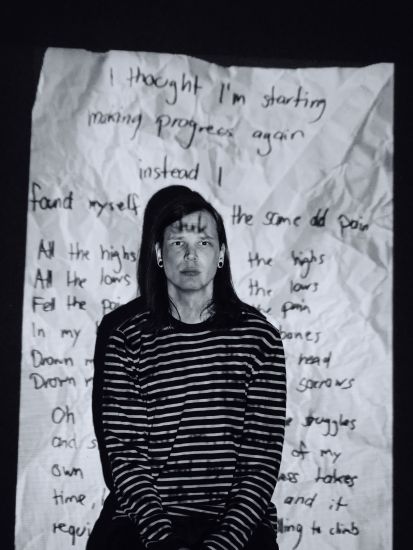 I thought I'm starting
making progress again
instead I
found myself the same old pain
All the highs the highs
All the lows the lows
Fell the the pain
In my bones
Drown head
Drown sorrows
Oh struggles
and of my
own takes
time, and it
to climb